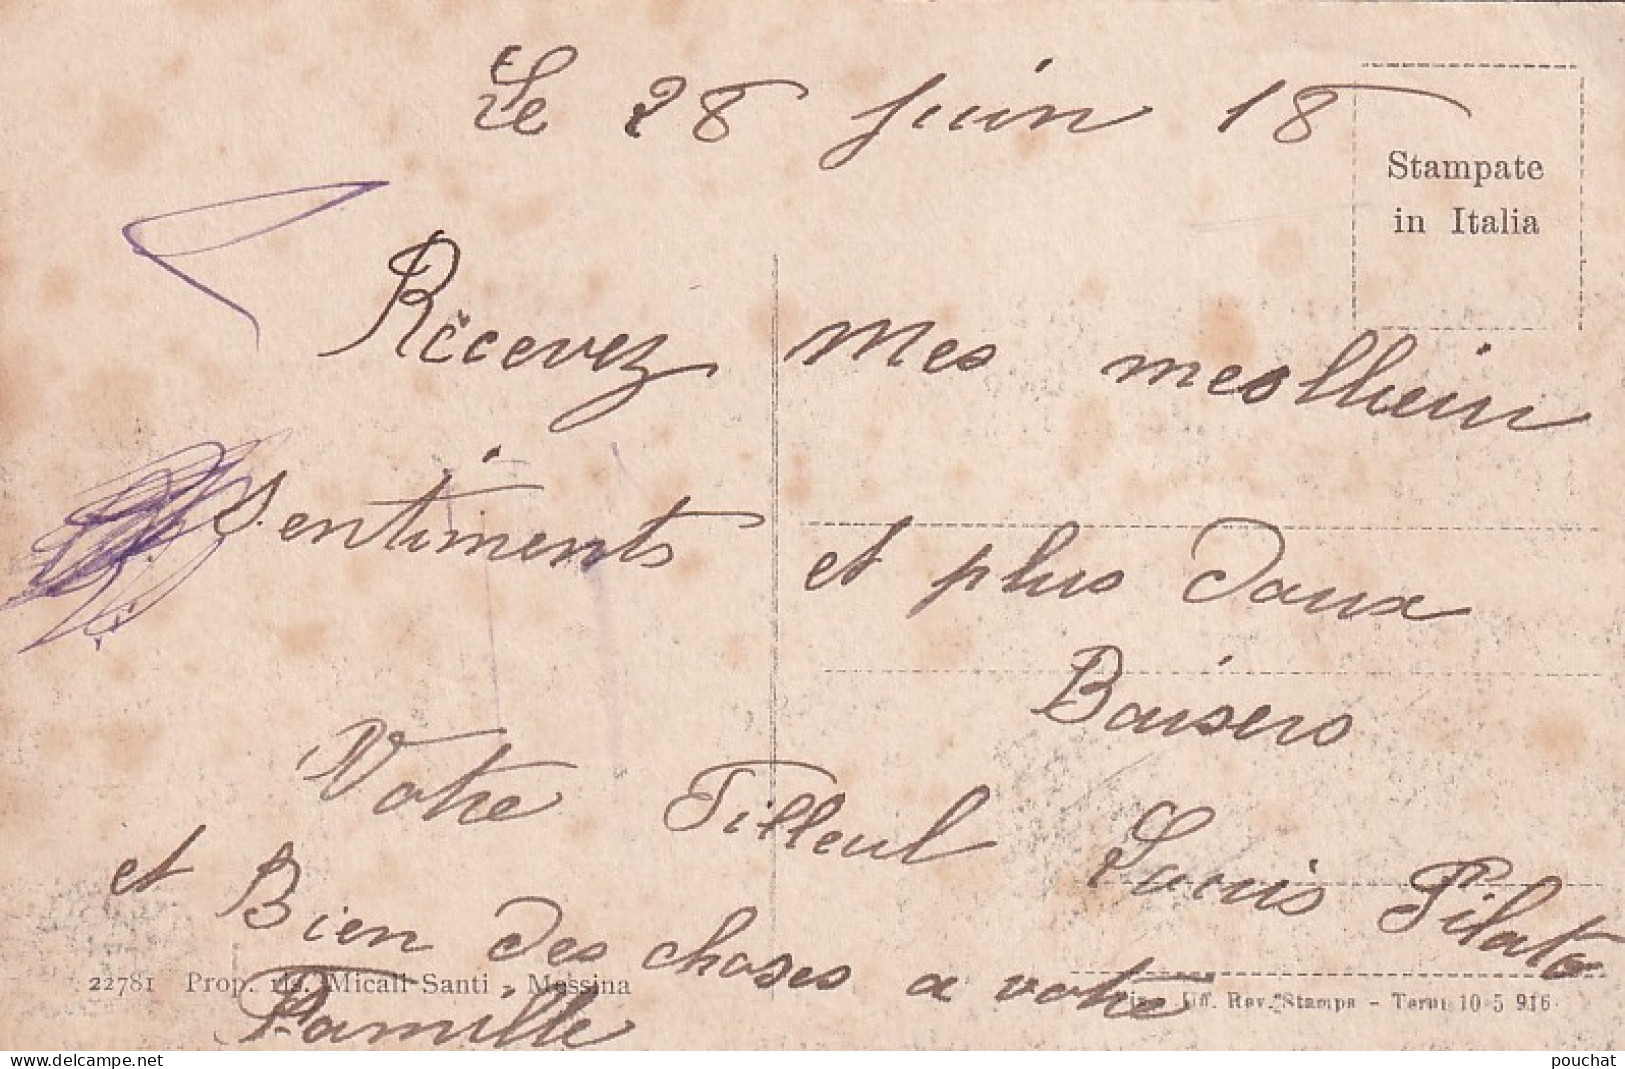 Le 28 Juin 18
Stampate
in Italia
Recevez mes meslluin
sentiments et plus Doux
Baisers
Votre Filleul Louis Pilato
et Bien des choses a votre
Famille
22781 Prop. ris. Micali-Santi - Messina
Uff. Rev. Stampa - Terni 10-5 916
pouchat